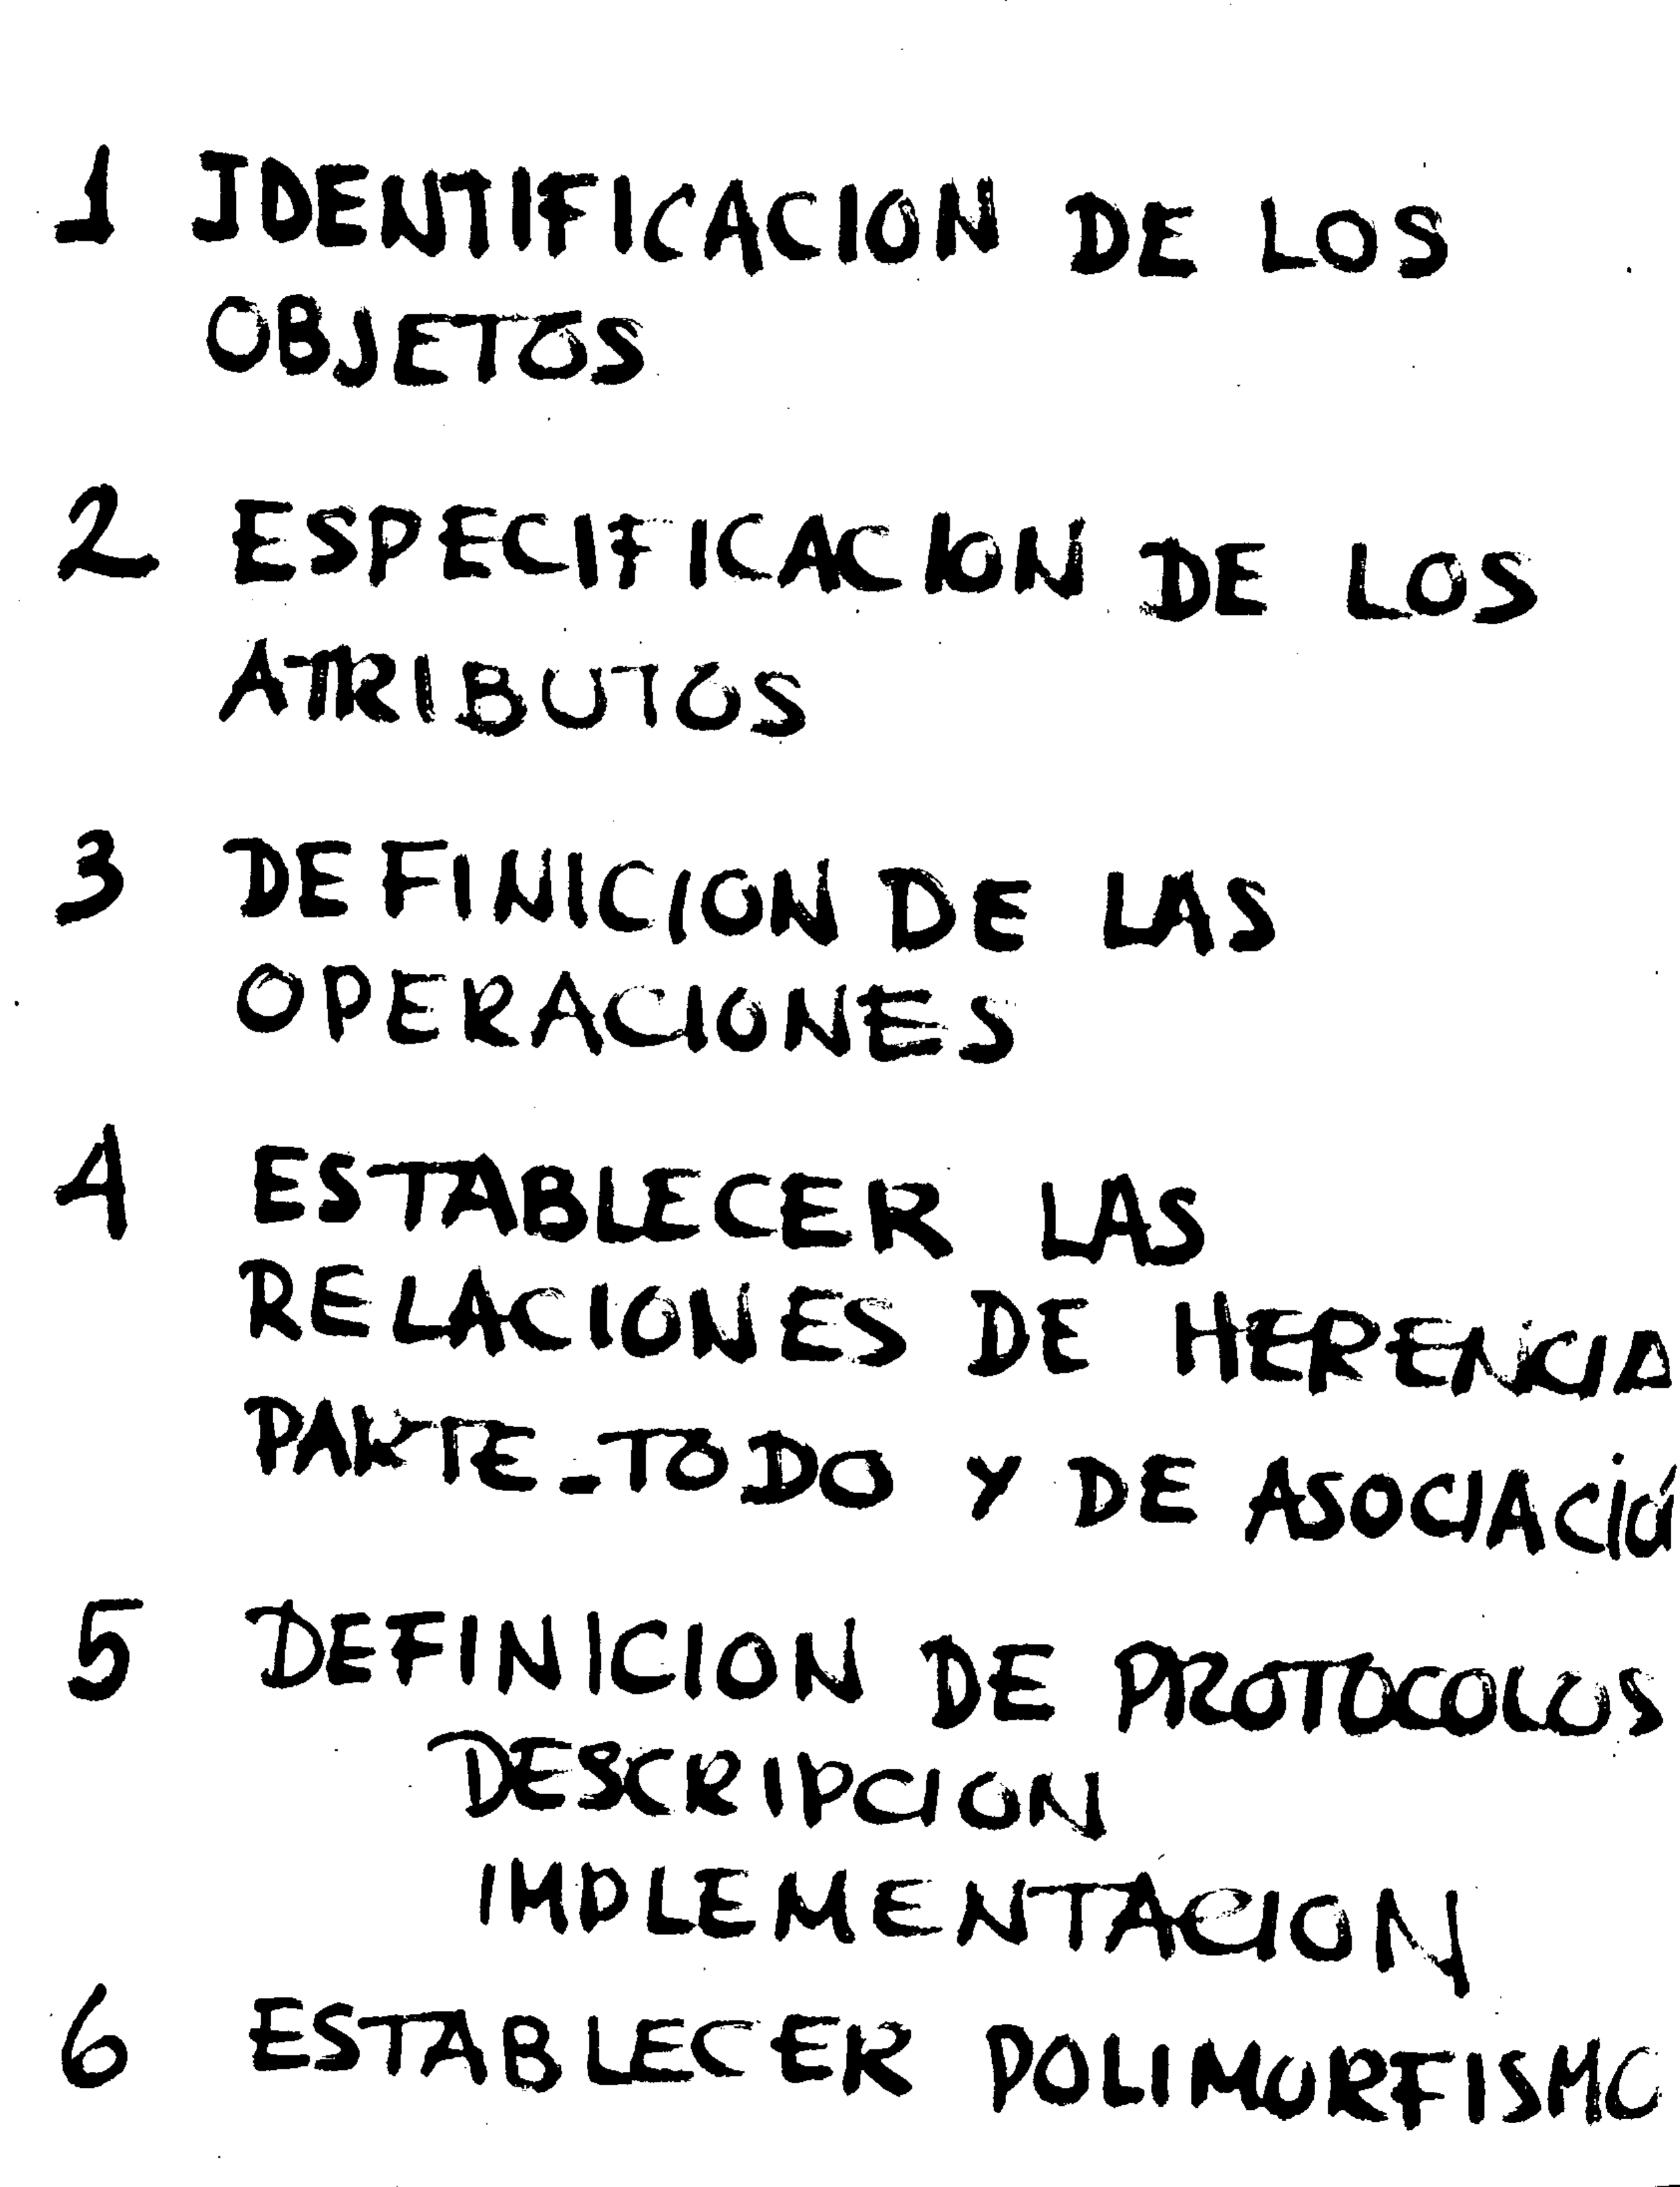 1 IDENTIFICACION DE LOS
OBJETOS
2 ESPECIFICACION DE LOS
ATRIBUTOS
3 DEFINICION DE LAS
OPERACIONES
4 ESTABLECER LAS
RELACIONES DE HERENCIA
PARTE-TODO Y DE ASOCIACIÓ
5 DEFINICION DE PROTOCOLOS
DESCRIPCION
IMPLEMENTACION
6 ESTABLECER POLIMORFISMO